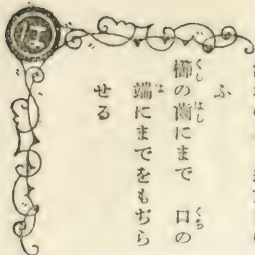 ほ
ふ
櫛の齒にまで　口の
端にまでをもぢら
せる